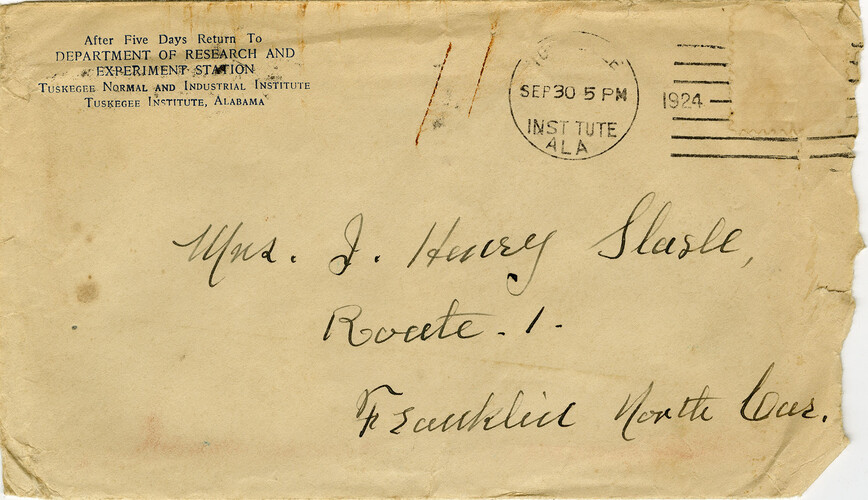 After Five Days Return To
DEPARTMENT OF RESEARCH AND
EXPERIMENT STATION
TUSKEGEE NORMAL AND INDUSTRIAL INSTITUTE
TUSKEGEE INSTITUTE, ALABAMA
SEP 30 5 PM
1924
INSTITUTE
ALA
Mrs. J. Henry Slagle,
Route. 1.
Franklin North Car.